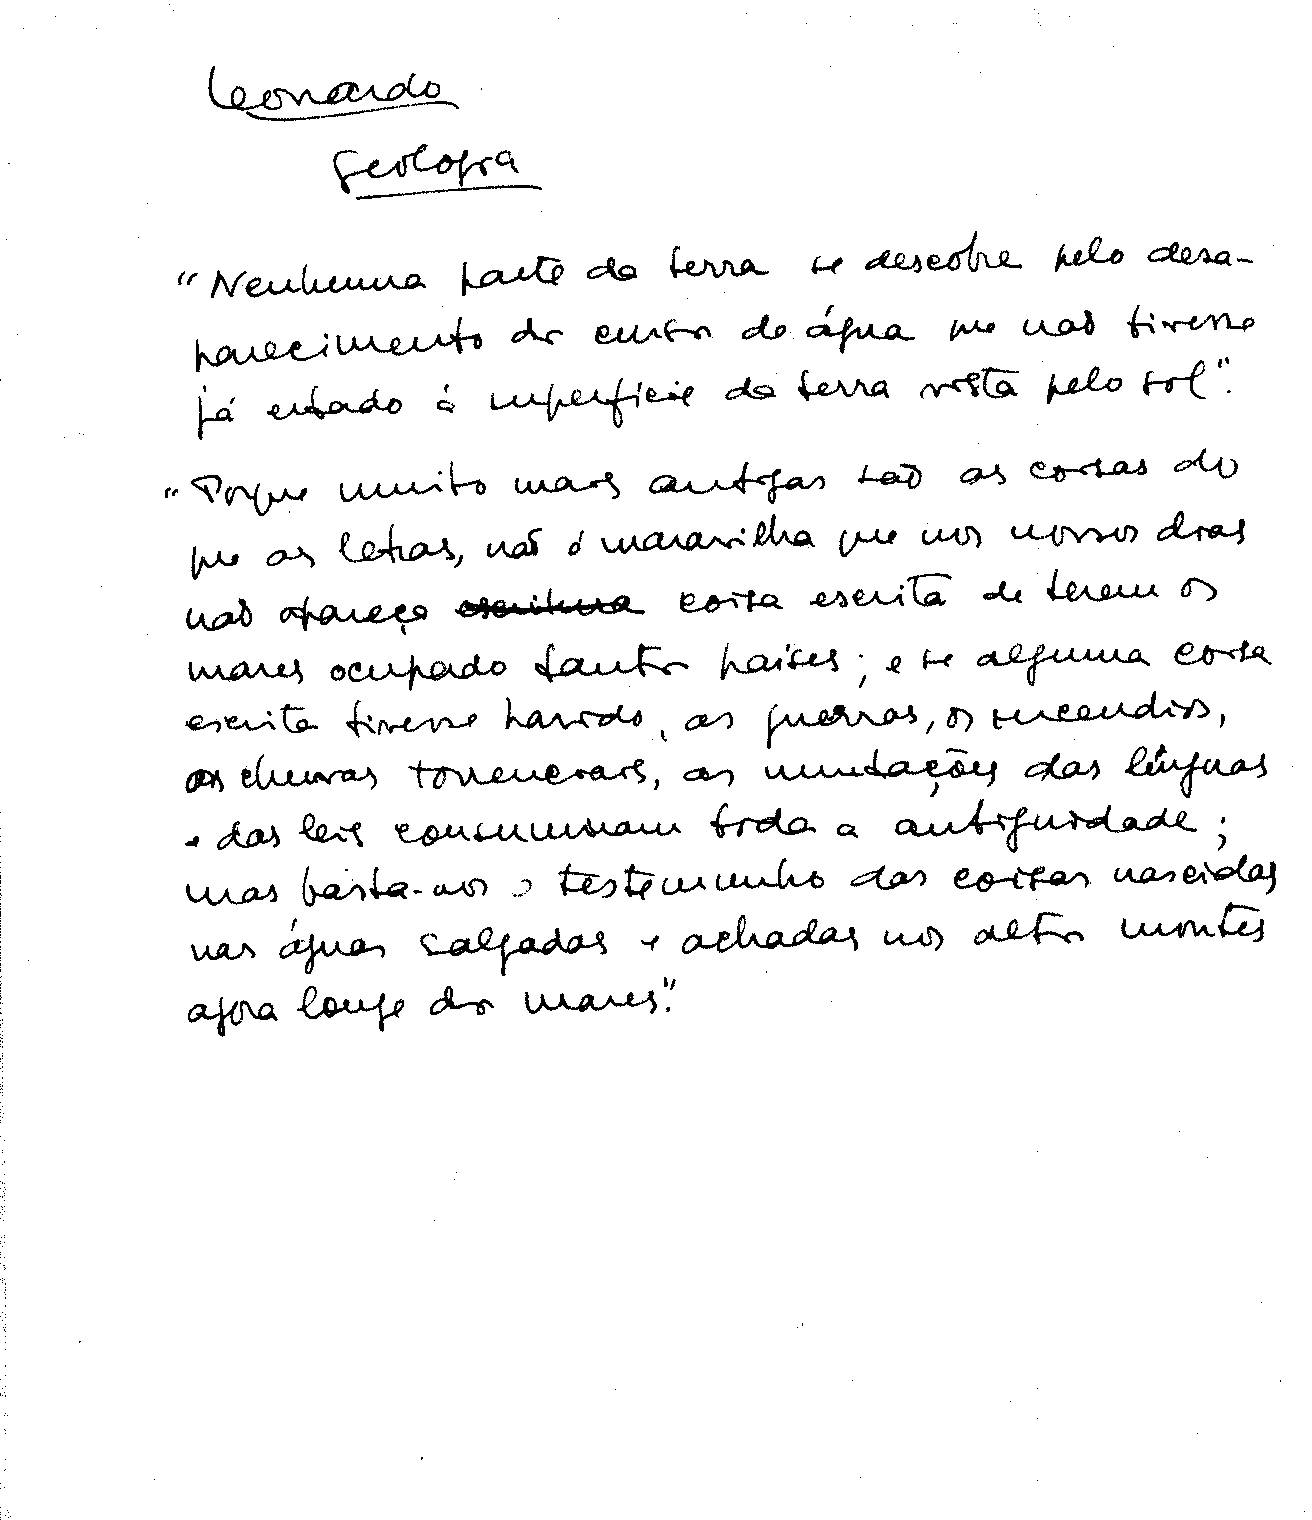 Leonardo
Geologia
"Nenhuma parte da terra se descobre pelo desa-
parecimento do curso de água que não tivesse
já estado à superfície da terra vista pelo sol".
"Porque muito mais antigas são as coisas do
que as letras, não é maravilha que nos nossos dias
não apareça escritura coisa escrita de terem os
mares ocupado tantos países; e se alguma coisa
escrita tivesse havido, as guerras, os incendios,
as chuvas torrenciais, as mutações das línguas
e das leis consumiram toda a antiguidade;
mas basta-nos o testemunho das coisas nascidas
nas águas salgadas e achadas nos altos montes
agora longe dos mares".